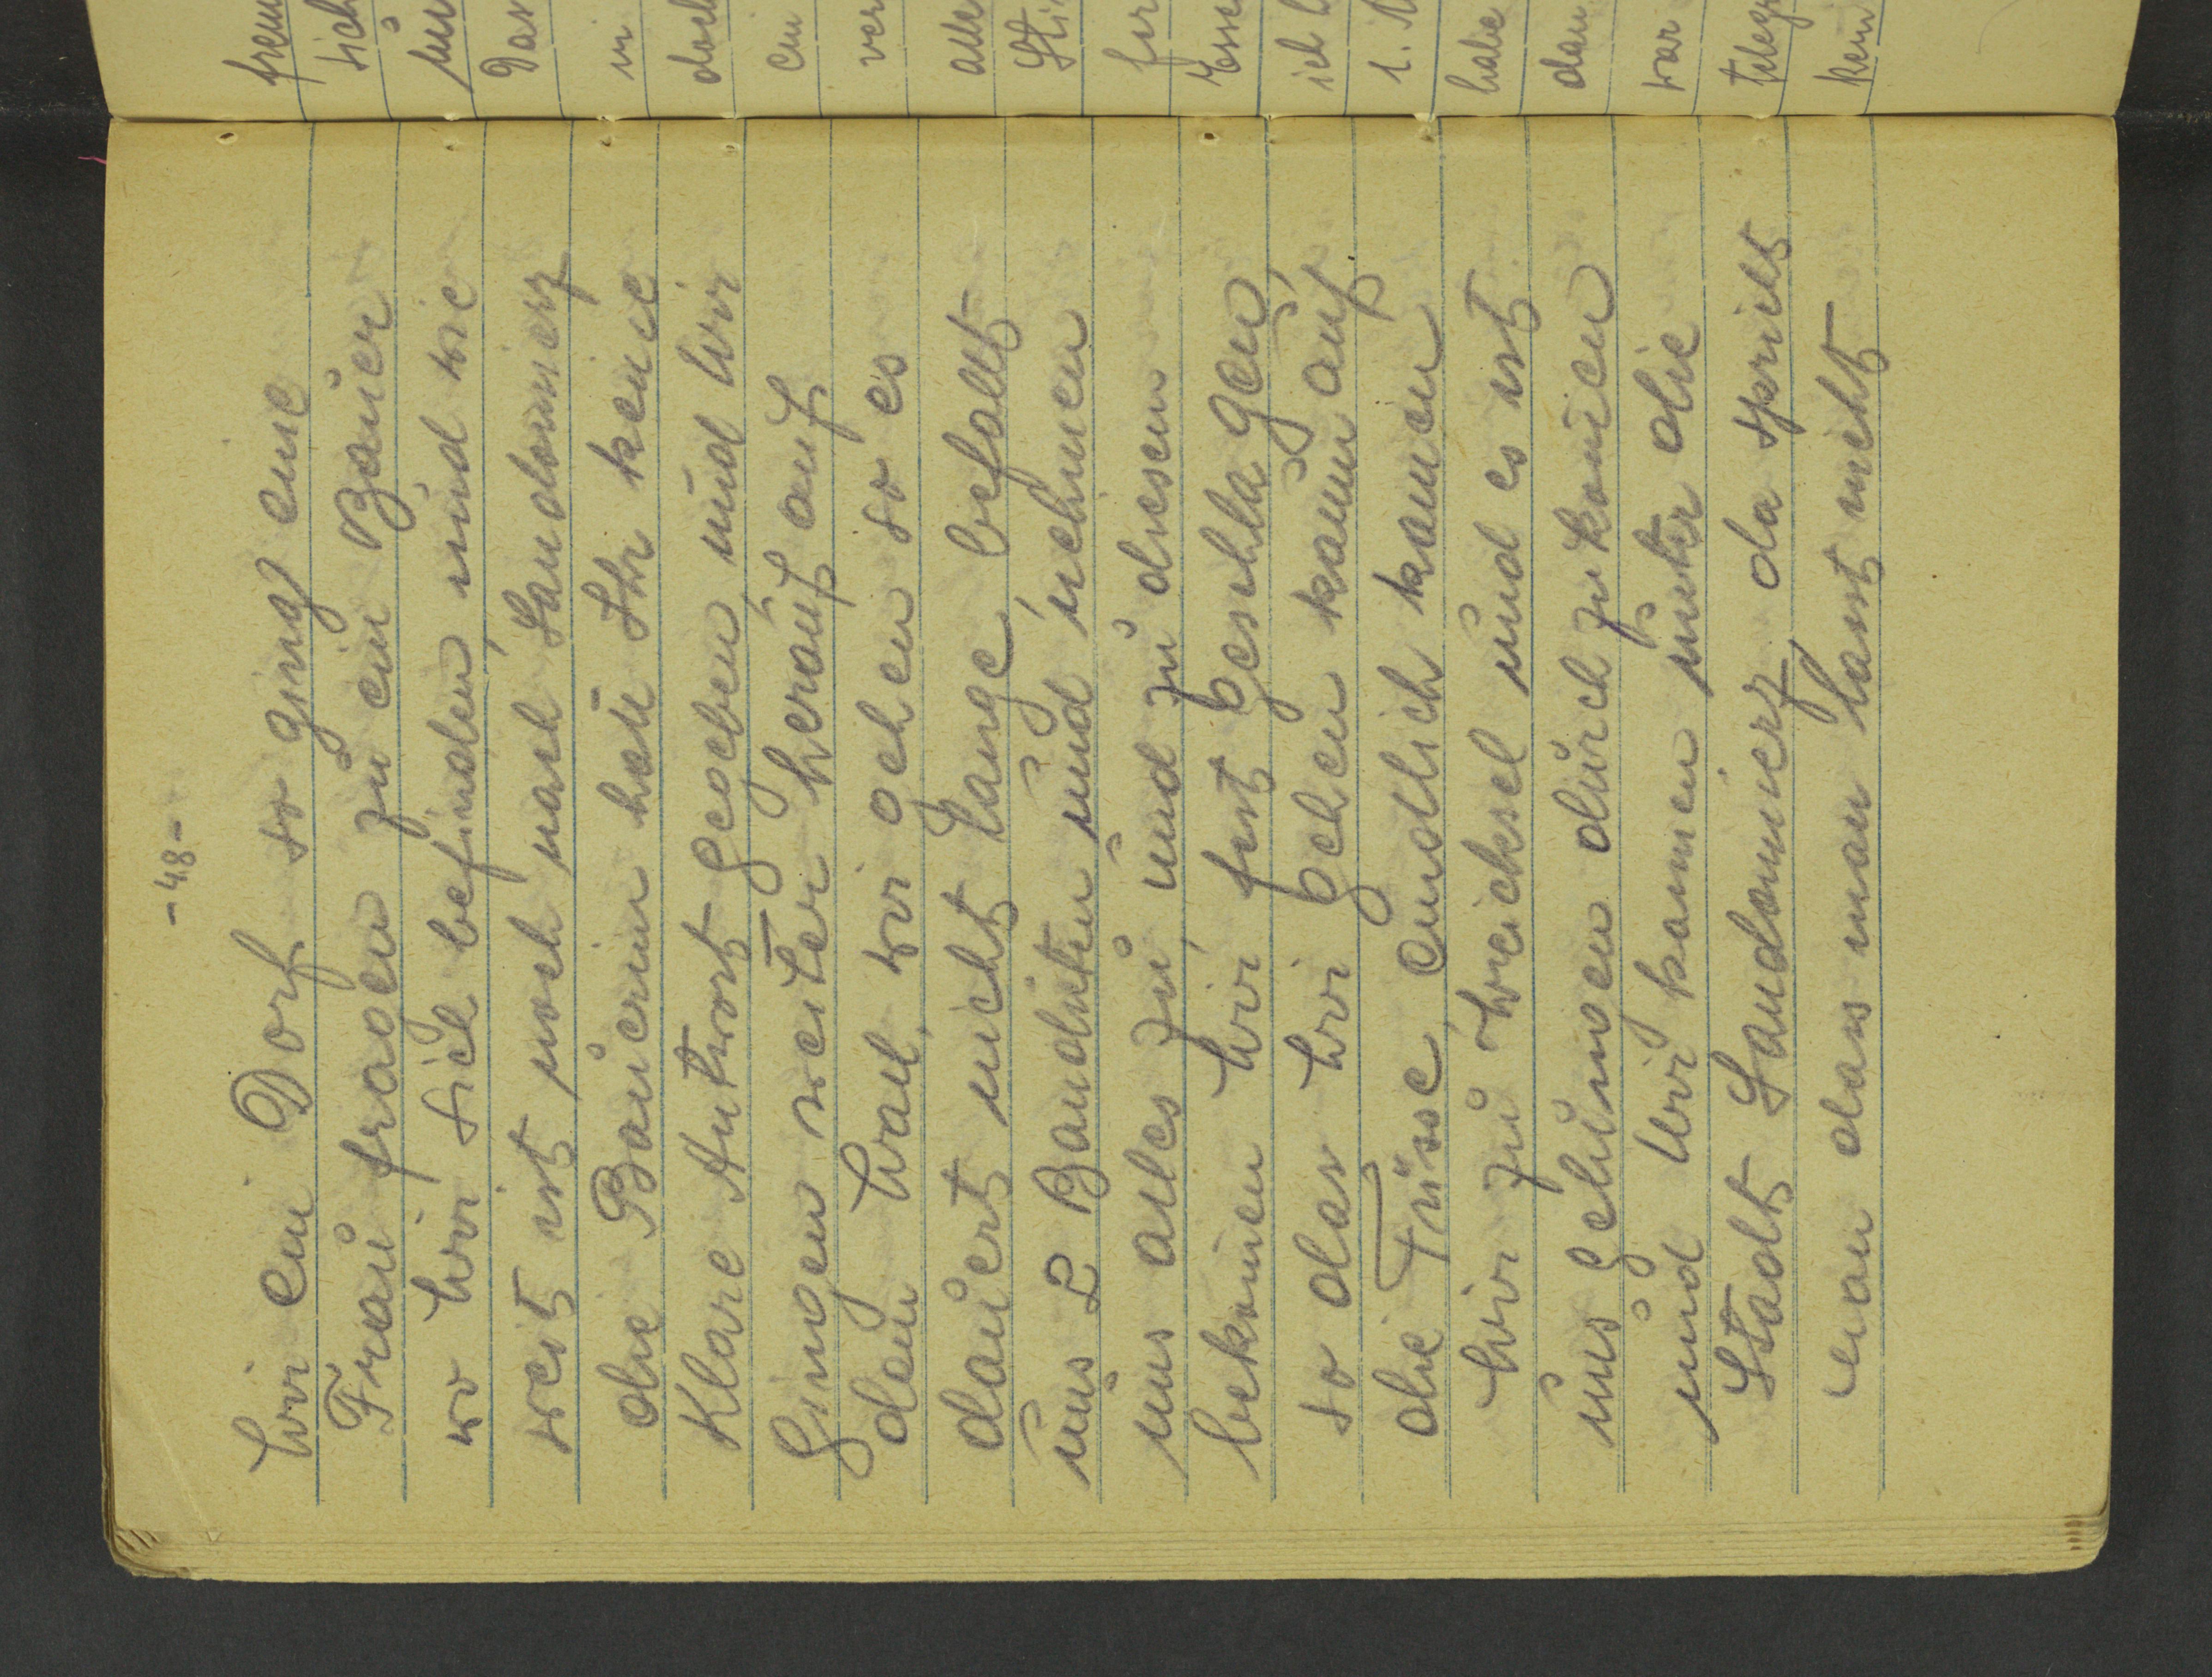 -48-
wir ein Dorf so ging eine
Frau fragen zu ein Bauer
wo wir sich befinden, und wie
weit ist noch nach Sandomierz
die Bauerin hate Ihr keine
Klare Antwort Gegeben, und wir
Gingen weiter herauf auf
den Wall, wi gehen so es
dauert nicht lange, befallt
uns 2 Banditen und nehmen
uns alles zu, und zu diesem
bekomen wir fest Geschlagen,
so das wir Gehen kaum auf
die Füsse, endlich kamen
wir zu Weichsel und es ist
uns gelungen durch zu komen
und wir kamen unter die
Stadt Sandomierz da spricht
man das man lasst nicht
frem
sich
un
Das
in
doch
ein
ver
alle
Sti
fur
Esse
ich
1.
habe
dan
war
telegr
kein